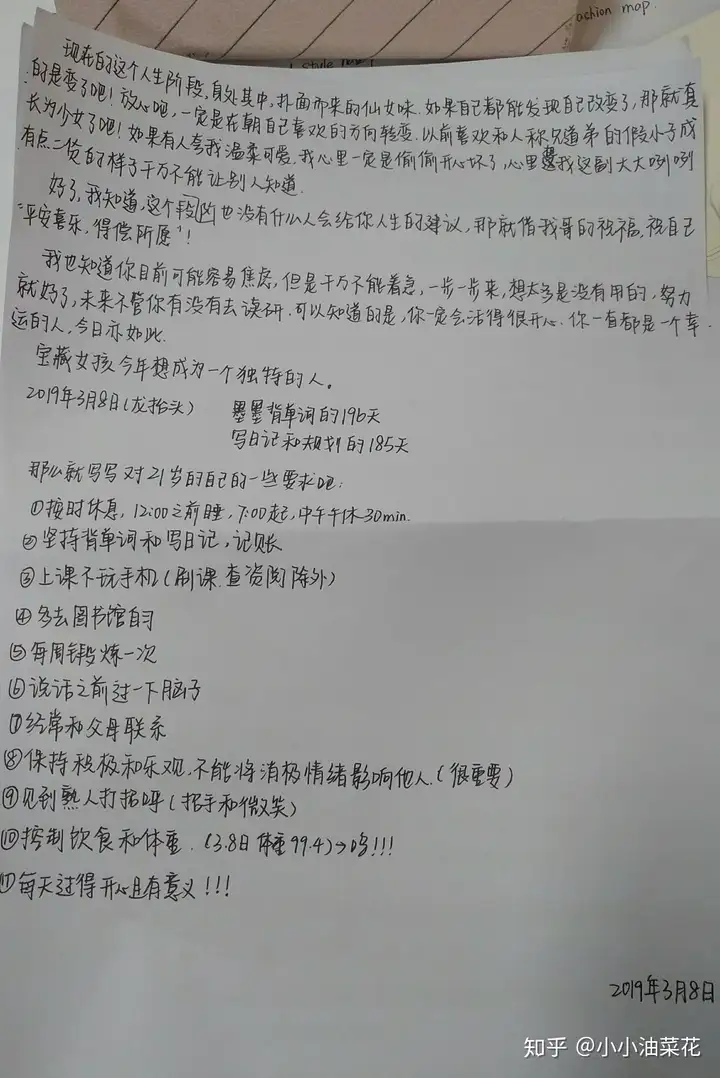 achion map.
style
现在的这个人生阶段,身处其中,扑面而来的仙女味.如果自己都能发现自己改变了,那就真
的是变了吧!放心吧,一定是在朝自己喜欢的方向转变.以前喜欢和人称兄道弟的假小子成
长为少女了吧!如果有人夸我温柔可爱.我心里一定是偷偷开心坏了,心里我这副大大咧咧
有点二货的样子千万不能让别人知道.
好了,我知道,这个段凶也没有什么人会给你人生的建议,那就借我哥的祝福,祝自己
"平安喜乐,得偿所愿"!
我也知道你目前可能容易焦虑,但是千万不能着急,一步一步来,想太多是没有用的,努力
就好了,未来不管你有没有去读研.可以知道的是,你一定会活得很开心.你一直都是一个幸
运的人,今日亦如此.
宝藏女孩今年想成为一个独特的人。
2019年3月8日(龙抬头) 墨墨背单词的196天
写日记和规划的185天
那么就写写对21岁的自己的一些要求吧:
①按时休息,12:00之前睡,7:00起,中午午休30min.
②坚持背单词和写日记,记账
③上课不玩手机(刷课.查资阅除外)
④多去图书馆自习
⑤每周锻炼一次
⑥说话之前过一下脑子
⑦经常和父母联系
⑧保持积极和乐观,不能将消极情绪影响他人.(很重要)
⑨见到熟人打招呼(招手和微笑)
⑩控制饮食和体重.(3.8日 体重99.4)→哈!!!
⑪每天过得开心且有意义!!!
2019年3月8日
知乎 @小小油菜花